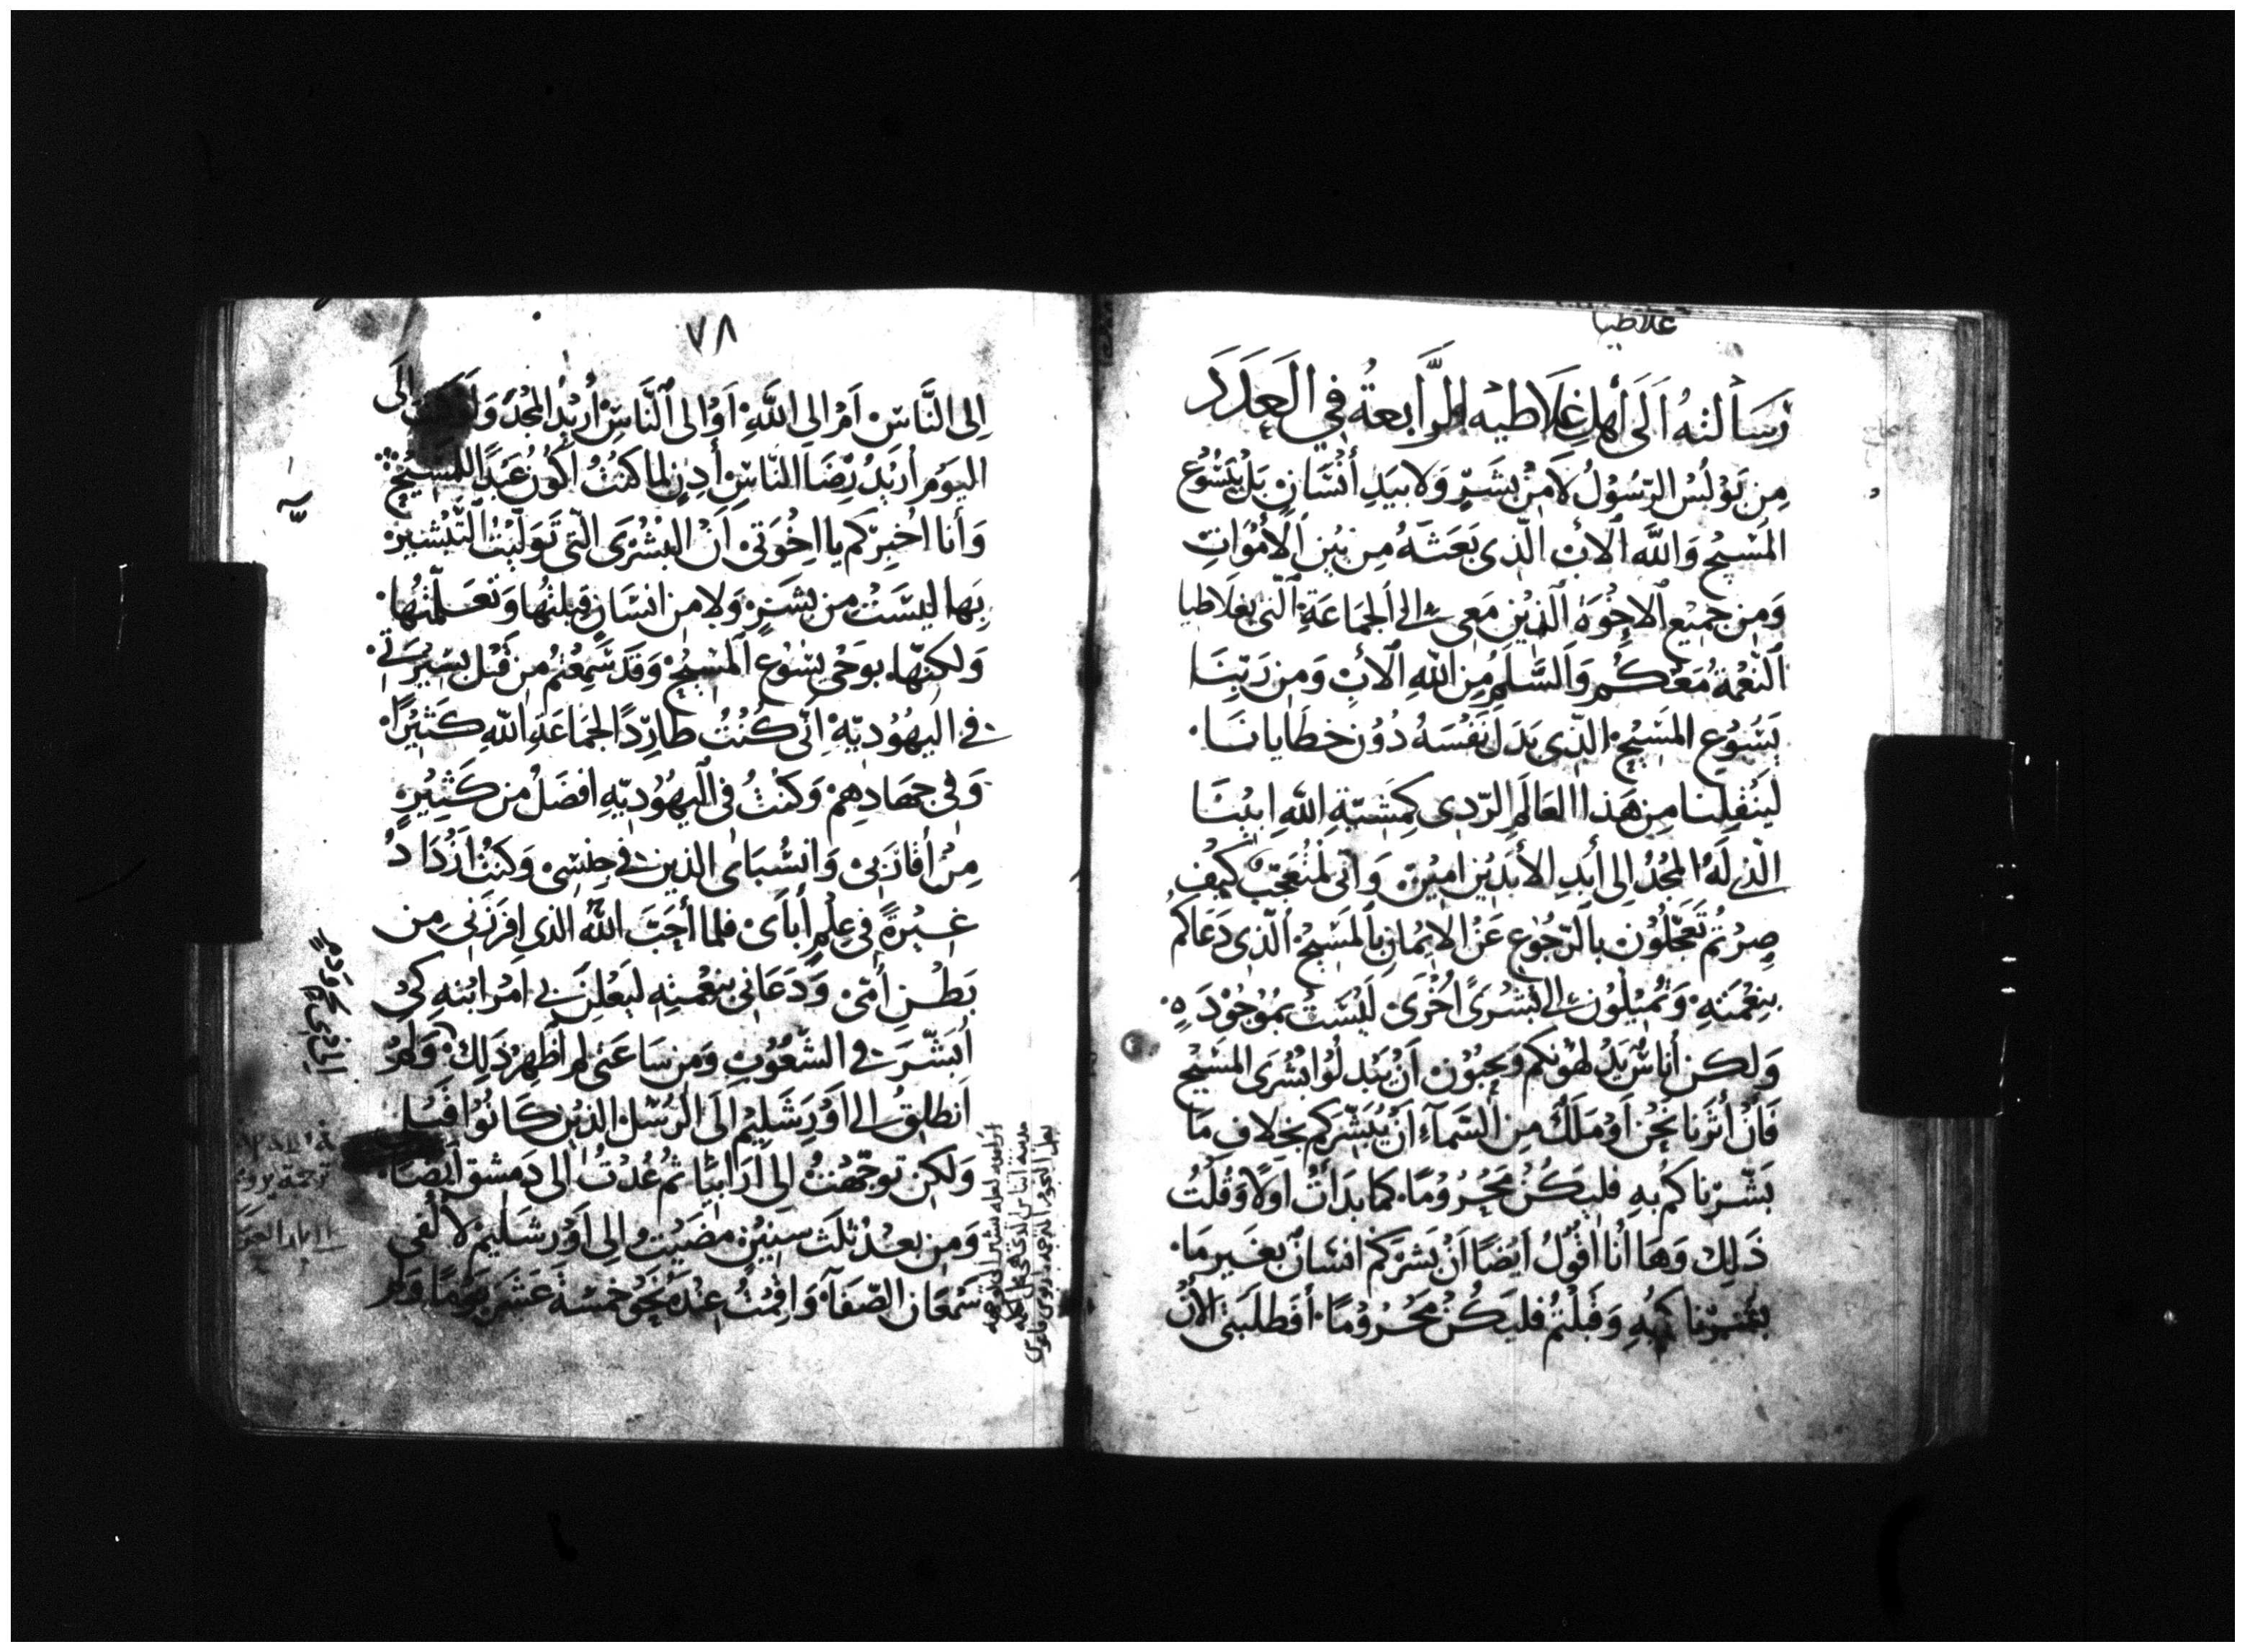 غلاطيا
رَسَالتهُ اَلَى أَهلِ غَلَاطيه الرَّابعةُ في العَدَدَ
مِن بَوْلسُ الرّسُوْلُ لَامِنْ بشَرٍ وَلا بيَدِ أنْسَانٍ بَلْ بيَسُوْع
المَسْيح وَاللَّه الَابْ الّذى بَعَثَهُ مِن بَيْنِ الَامْوَاتِ
وَمِن جميْع الاخْوَة الذيْن مَعِى الى الجمَاعَة الّتى بغلاطيا
النّعْمَة مَعَكُم وَالسَّلم مِنِ اللّهِ الَابْ وَمِن رَبّنَا
يَسُوْعِ المَسْيحْ الذى بَدَل نَفْسَهُ دُوْن خطَايانَا
ليَنْقِلنا مِن هَذا العَالَمِ الرّدِى كَمِشيّةِ اللَّهِ ابيْنَا
الذى لَهُ المجْدُ الى أبَدِ الأبَدِيْن امِيْن وَانّى لمتْعَجّبْ كَيْف
صِرْتُم تَعَجّلُوْن بالرّجُوْع عَن الايْمَانِ بالمَسْيح الّذى دَعَاكُم
بنِعْمَتِهِ وَتمْيْلُوْن الى بُشرَىً اخْرَى لَيْسَتْ بموْجُوْدَهِ
وَلكن أناسٌ يَدْلهوْنكم وَيحبّوْن اَنْ يَبْدلُوْا بُشْرَى المسْيح
فَانْ أثرْنا نَحْن اَوْ مَلَكٌ مِن السَّمَآءِ اَنْ يُبَشّرَكم بخِلافِ مَا
بَشّرْناكمْ بهِ فليَكُنْ مَحْرُوْمًا كما بدَاتُ اوَلًا وَقُلتُ
ذَلِكْ وَهَا انَا اقوْلُ ايْضًا اَنْ بَشرَكم انسَانٌ بغَيرِ مَا
بشّرْناكمْ بهِ وَقَبلتُم فليَكُنْ مَحْرُوْمًا أفَطلبَتى الانْ
٧٨
اِلى النَّاسْ اَمْ الى اللَّهِ اَوْ الى النَّاسِ أرِيْدُ المجْدَ
اليَوْمِ أرِيْدُ رِضَا النّاسِ أدِنْ لما كنْتُ اكُونُ عَبْدًا للمَسْيح
وَأنا اخبِرْكم يا اخْوَتى اَنّ البُشْرَى الّتى تَوَليْتُ التّبْشير
بِها ليْسَتْ مِن بشَرٍ وَلا مِن انسَانٍ قبلتُها وَتعَلّمْتُها
وَلكِنّها بوَحْى يسُوْع المسْيحْ وَقَد سَمِعْتُم مِن قَبْل بسِيْرَتى
فى اليهُوْديّهِ اَنّى كُنْتُ طارِدًا لجَمَاعَةِ اللَّهِ كَثيْرًا
وَفى جهَادِهِمْ وَكنْتُ فى اليهُوْديّهِ افضَل مِن كَثِيْرِ
مِنْ أقارَبى وَانسْبَاى الذين فى جِنسِى وَكنْتُ ازْدَادُ
غَيْرَةً فى عِلْمِ أبَاى فلما أحَبّ اللَّه الذى افرَزَنى مِن
بَطْنِ أمّى وَدَعَانى بنِعْمتهِ ليَعْلِنَ بى امْر ابْنهِ كى
أبَشّرَ فى الشّعُوْبِ وَمِن سَاعَتى لم اظْهِرْ ذَلِكْ وَلم
اَنطلِقْ الى اَوْرَشَلِيْم الى الرّسُل الذيْن كَانُوْا قبْلى
وَلكِن توَجّهْتُ الى ارَابيَا ثُم عُدْتُ الى دِمشق ايضًا
وَمِن بعْدِ ثلَث سِنيْن مضَيْت الى اَوْرَشَليْم لالْقى
سمْعَان الصّفَآ وَاقمْتُ عِنْدَهُ نَحْو خمْسَة عَشَر يَوْمًا وَلم